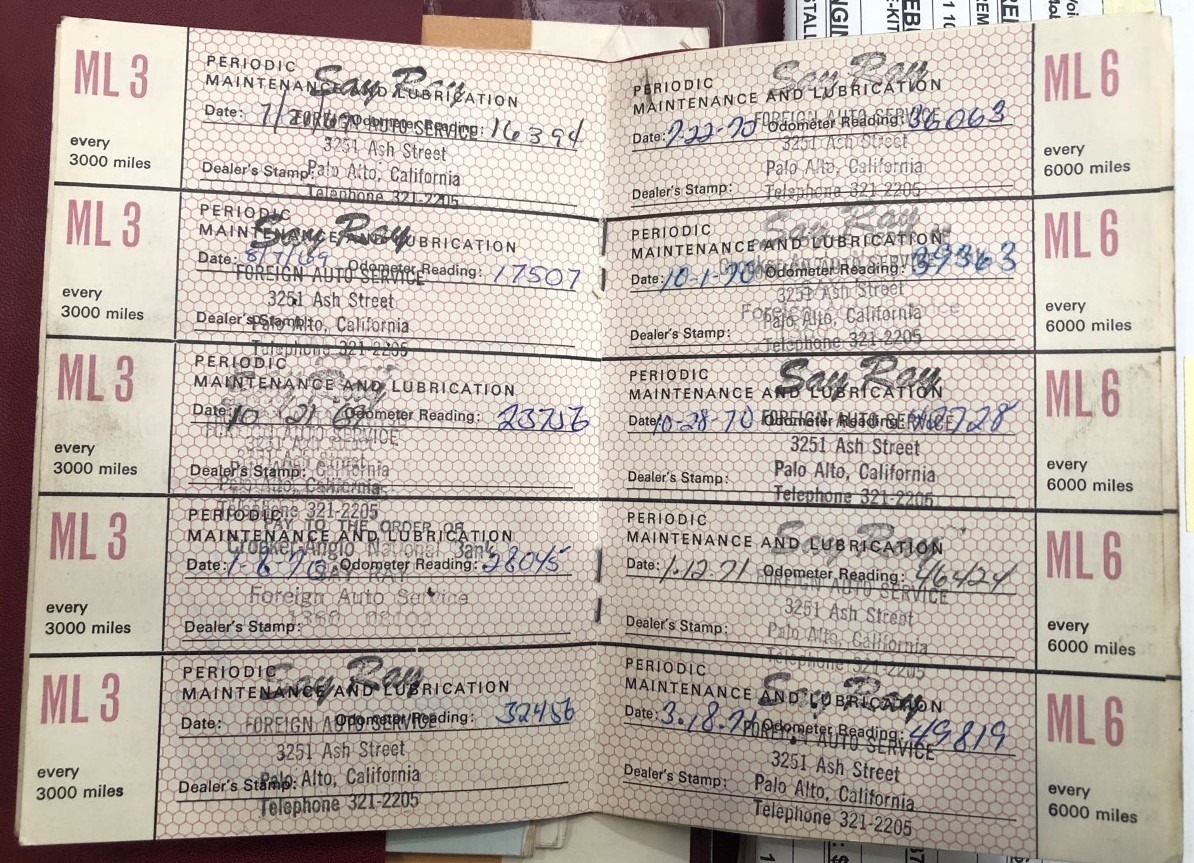 ML 3
every
3000 miles
PERIODIC
MAINTENANCE AND LUBRICATION
Say Ray
Date: 7/ /69 Odometer Reading: 16394
FOREIGN AUTO SERVICE
3251 Ash Street
Dealer's Stamp:
Palo Alto, California
Telephone 321-2205
ML 3
every
3000 miles
PERIODIC
MAINTENANCE AND LUBRICATION
Say Ray
Date: 8/7/69 Odometer Reading: 17507
FOREIGN AUTO SERVICE
3251 Ash Street
Dealer's Stamp:
Palo Alto, California
Telephone 321-2205
ML 3
every
3000 miles
PERIODIC
MAINTENANCE AND LUBRICATION
Date: 10 21 69 Odometer Reading: 23756
AUTO SERVICE
3251 Ash Street
Dealer's Stamp:
Palo Alto, California
Telephone 321-2205
ML 3
every
3000 miles
PERIODIC
PAY TO THE ORDER OF
MAINTENANCE AND LUBRICATION
Crocker-Anglo National Bank
Date: 1-8-70 Odometer Reading: 28045
SAY RAY
Foreign Auto Service
Dealer's Stamp:
ML 3
every
3000 miles
PERIODIC
MAINTENANCE AND LUBRICATION
Say Ray
Date: Odometer Reading: 32456
FOREIGN AUTO SERVICE
3251 Ash Street
Dealer's Stamp:
Palo Alto, California
Telephone 321-2205
PERIODIC
MAINTENANCE AND LUBRICATION
Say Ray
Date: 7-22-70 Odometer Reading: 36063
FOREIGN AUTO SERVICE
3251 Ash Street
Palo Alto, California
Dealer's Stamp:
Telephone 321-2205
ML 6
every
6000 miles
PERIODIC
MAINTENANCE AND LUBRICATION
Say Ray
Date: 10-1-70 Odometer Reading: 39363
3251 Ash Street
Palo Alto, California
Dealer's Stamp:
Telephone 321-2205
ML 6
every
6000 miles
PERIODIC
MAINTENANCE AND LUBRICATION
Say Ray
Date: 10-28-70 Odometer Reading: 42728
FOREIGN AUTO SERVICE
3251 Ash Street
Palo Alto, California
Dealer's Stamp:
Telephone 321-2205
ML 6
every
6000 miles
PERIODIC
MAINTENANCE AND LUBRICATION
Say Ray
Date: 1.12.71 Odometer Reading: 46424
FOREIGN AUTO SERVICE
3251 Ash Street
Dealer's Stamp:
Palo Alto, California
Telephone 321-2205
ML 6
every
6000 miles
PERIODIC
MAINTENANCE AND LUBRICATION
Say Ray
Date: 3.18.71 Odometer Reading: 49819
FOREIGN AUTO SERVICE
3251 Ash Street
Dealer's Stamp:
Palo Alto, California
Telephone 321-2205
ML 6
every
6000 miles